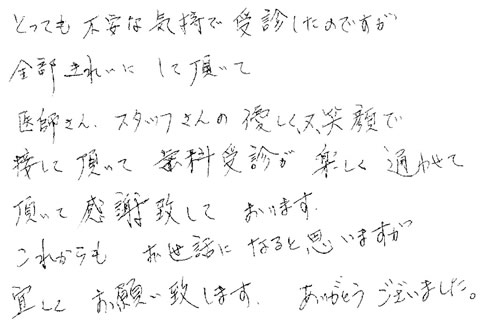 とっても不安な気持で受診したのですが
全部きれいにして頂いて
医師さん、スタッフさんの優しく又笑顔で
接して頂いて歯科受診が楽しく通わせて
頂いて感謝致しております。
これからもお世話になると思いますが
宜しくお願い致します。ありがとうございました。